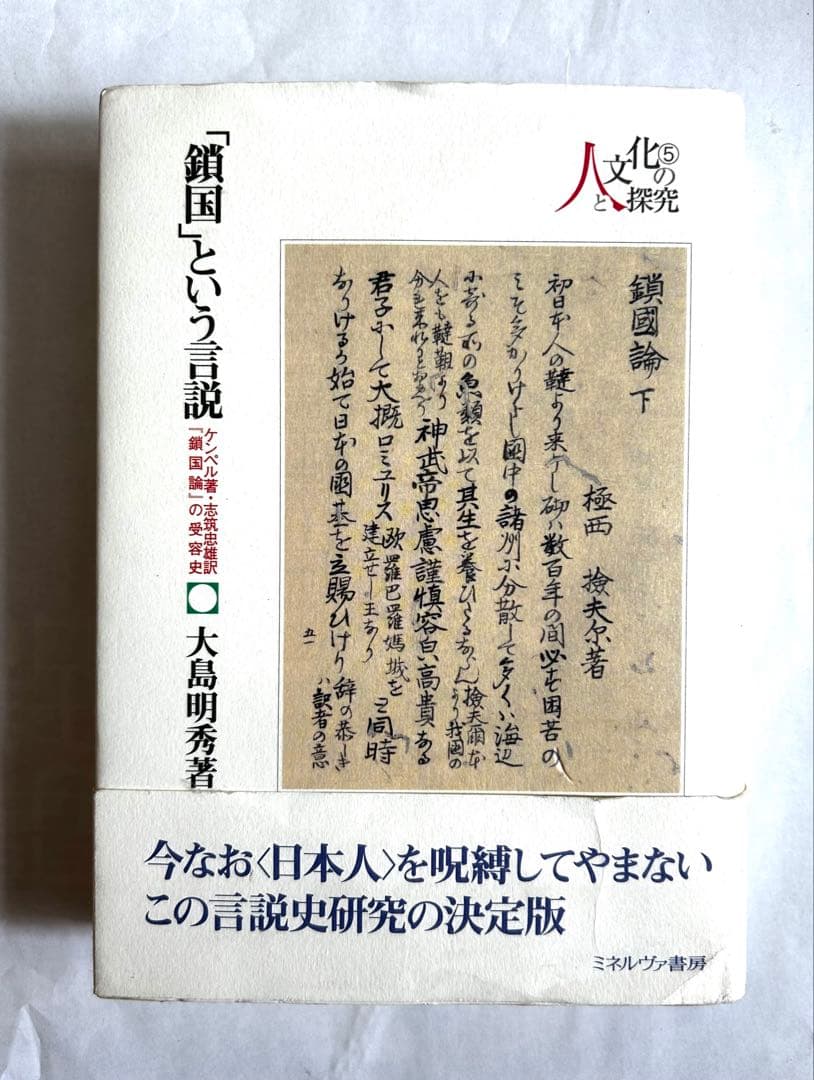 「鎖国」という言説
ケンペル著・志筑忠雄訳
『鎖国論』の受容史
大島明秀著
人と文化の探究⑤
鎖國論 下
極西 撿夫尔著
初日本人の韃より来りし砌ハ数百年の間必も困苦の
國中の諸州に分散して多くハ海辺
の魚類を以て其生を養ひ
人をも韃靼より
神武帝思慮謹慎容皃高貴ある
君子にして大概ロミュリス 欧羅巴羅媽城を
建立せし王なり
と同時
なりける始て日本の國基を立賜ひけり
辞の恭しき
ハ訳者の意
五一
今なお〈日本人〉を呪縛してやまない
この言説史研究の決定版
ミネルヴァ書房